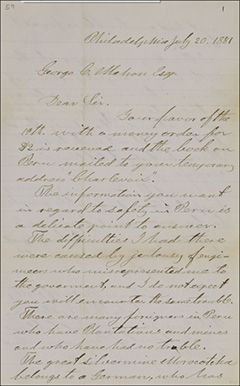 1
Philadelphia July 20. 1881
George C. Mahon Esq
Dear Sir.
Your favor of the
19th with a money order for
$2 is received and the book on
Peru mailed to your temporary
address
The information you want
in regard to safety in Peru is
a delicate point to answer.
The difficulties I had there
were caused by jealousy of engi-
neers who misrepresented me to
the government, and I do not expect
you will encounter the same trouble.
There are many foreigners in Peru
who have Plantations and mines
and who have had no trouble.
The great silver mine
belongs to a German who has